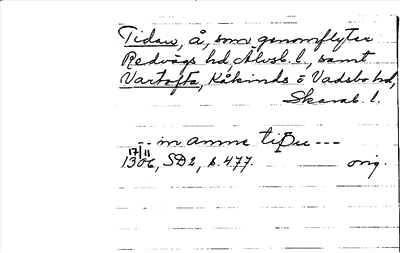 Tidan, å, som genomflyter
Redvägs hd, Älvsb. l., samt
Vartofta, Kåkinds o Vadsbo hd,
Skarab. l.
-- in amne tißu ---
17/11
1306, SD 2, s. 477. orig.